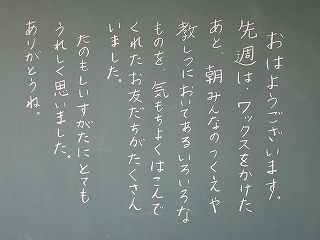 おはようございます。
先週は、ワックスをかけた
あと、朝みんなのつくえや
教しつにおいてあるいろいろな
ものを、気もちよくはこんで
くれたお友だちがたくさん
いました。
たのもしいすがたにとても
うれしく思いました。
ありがとうね。